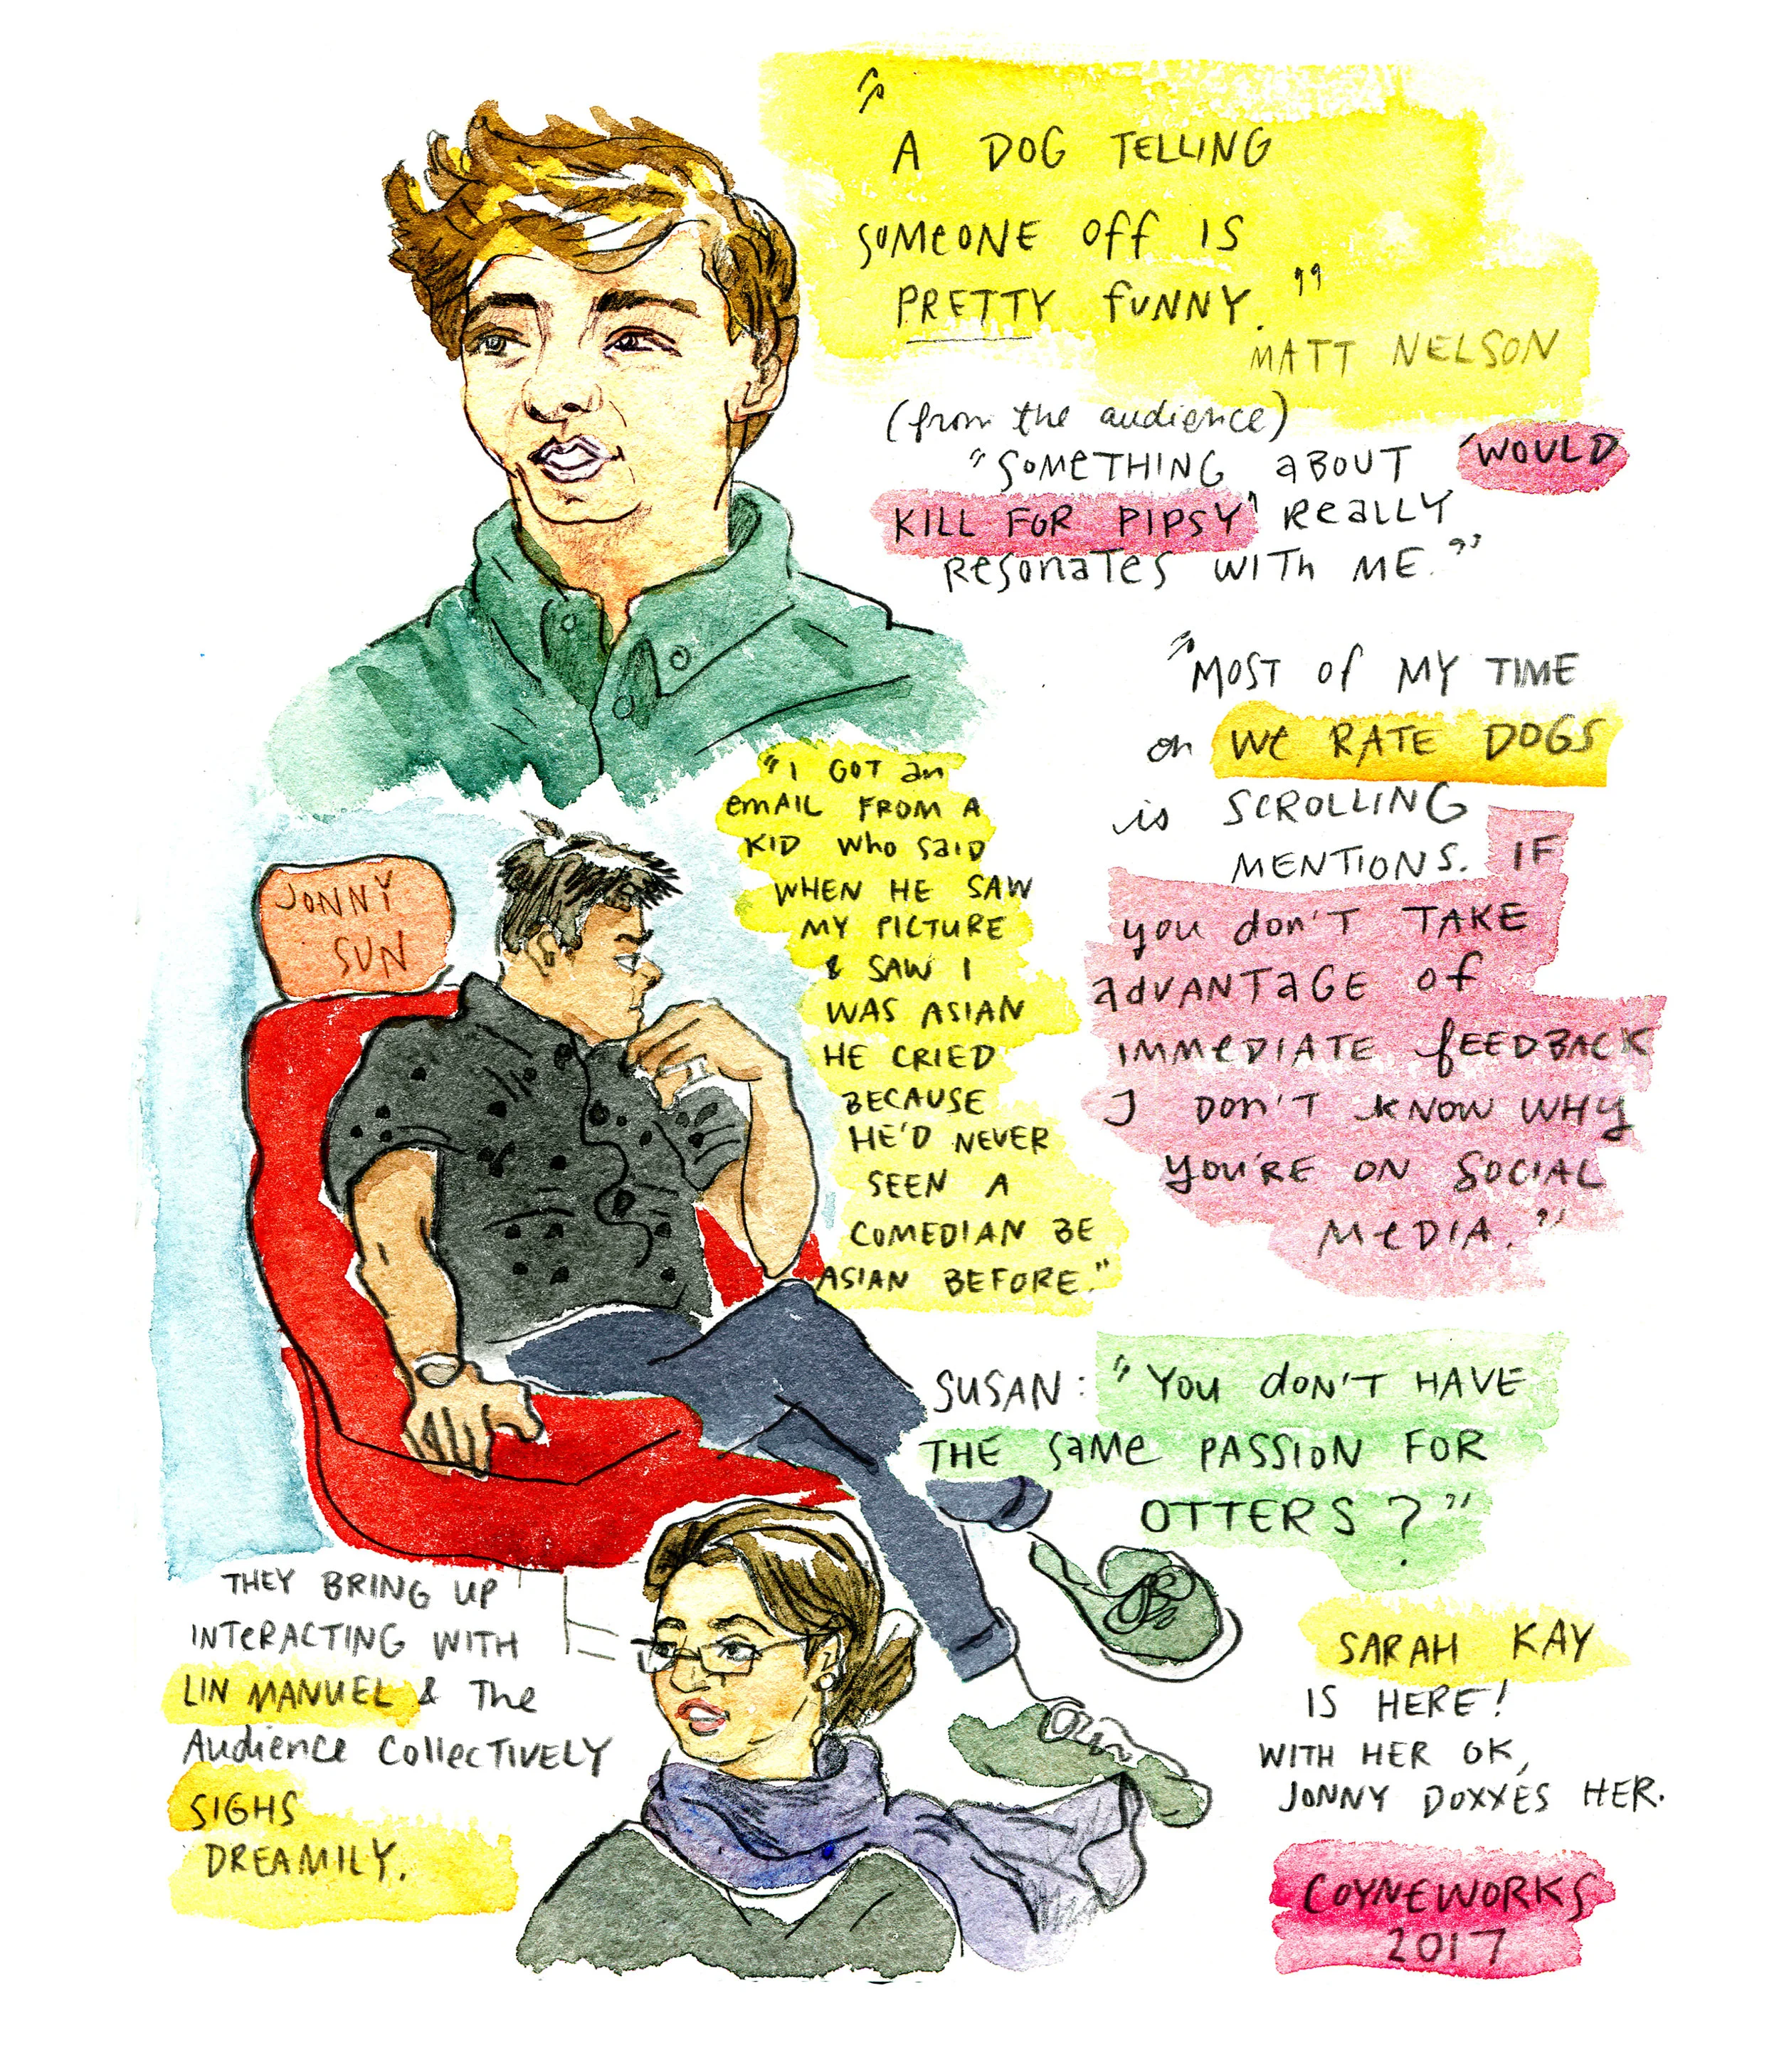 "A DOG TELLING
SOMEONE OFF IS
PRETTY FUNNY."
MATT NELSON
(from the audience)
"SOMETHING ABOUT 'WOULD
KILL FOR PIPSY' REALLY
RESONATES WITH ME."
"MOST OF MY TIME
on WE RATE DOGS
is SCROLLING
MENTIONS. IF
YOU DON'T TAKE
ADVANTAGE OF
IMMEDIATE FEEDBACK
I DON'T KNOW WHY
YOU'RE ON SOCIAL
MEDIA."
JONNY
SUN
"I GOT an
EMAIL FROM A
KID WHO SAID
WHEN HE SAW
MY PICTURE
& SAW I
WAS ASIAN
HE CRIED
BECAUSE
HE'D NEVER
SEEN A
COMEDIAN BE
ASIAN BEFORE."
SUSAN: "YOU DON'T HAVE
THE SAME PASSION FOR
OTTERS?"
THEY BRING UP
INTERACTING WITH
LIN MANUEL & The
Audience COLLECTIVELY
SIGHS
DREAMILY.
SARAH KAY
IS HERE!
WITH HER OK,
JONNY DOXXES HER.
COYNEWORKS
2017